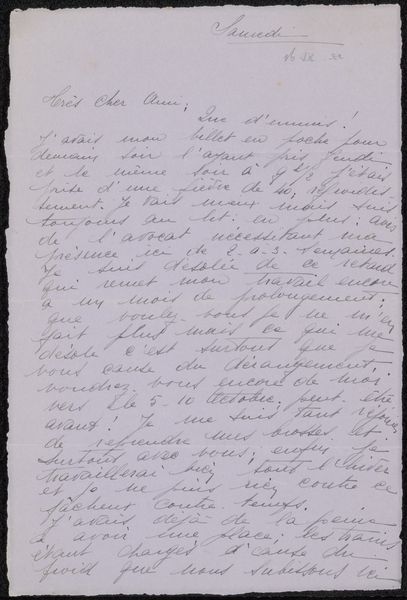 Samedi
Très cher Ami,
Que d'ennuis!
J'avais mon billet en poche pour
demain soir l'ayant pris jeudi
et le même soir à 9 1/2 j'étais
prise d'une fièvre de 40, refroidis
sement. Je vais mieux mais suis
toujours au lit. en plus: avis
de l'avocat nécessitant ma
présence ici de 2-a-3-semaines.
Je suis désolée de ce retard
qui remet mon travail encore
a un mois de prolongement;
que voulez-vous je ne m'en
fait plus mais ce qui me
désole c'est surtout que je
vous cause du dérangement,
voudrez-vous encore de moi
vers le 5-10 Octobre. peut-être
avant. Je me suis tant réjouie
de reprendre mes brosses et
surtout avec vous; enfin je
travaillerai bien tout l'hiver
et je ne puis rien contre ce
fâcheux contre-temps.
J'avais déjà de la peine
a avoir une place; les trains
étant chargés d cause du
froid que nous subissons ici